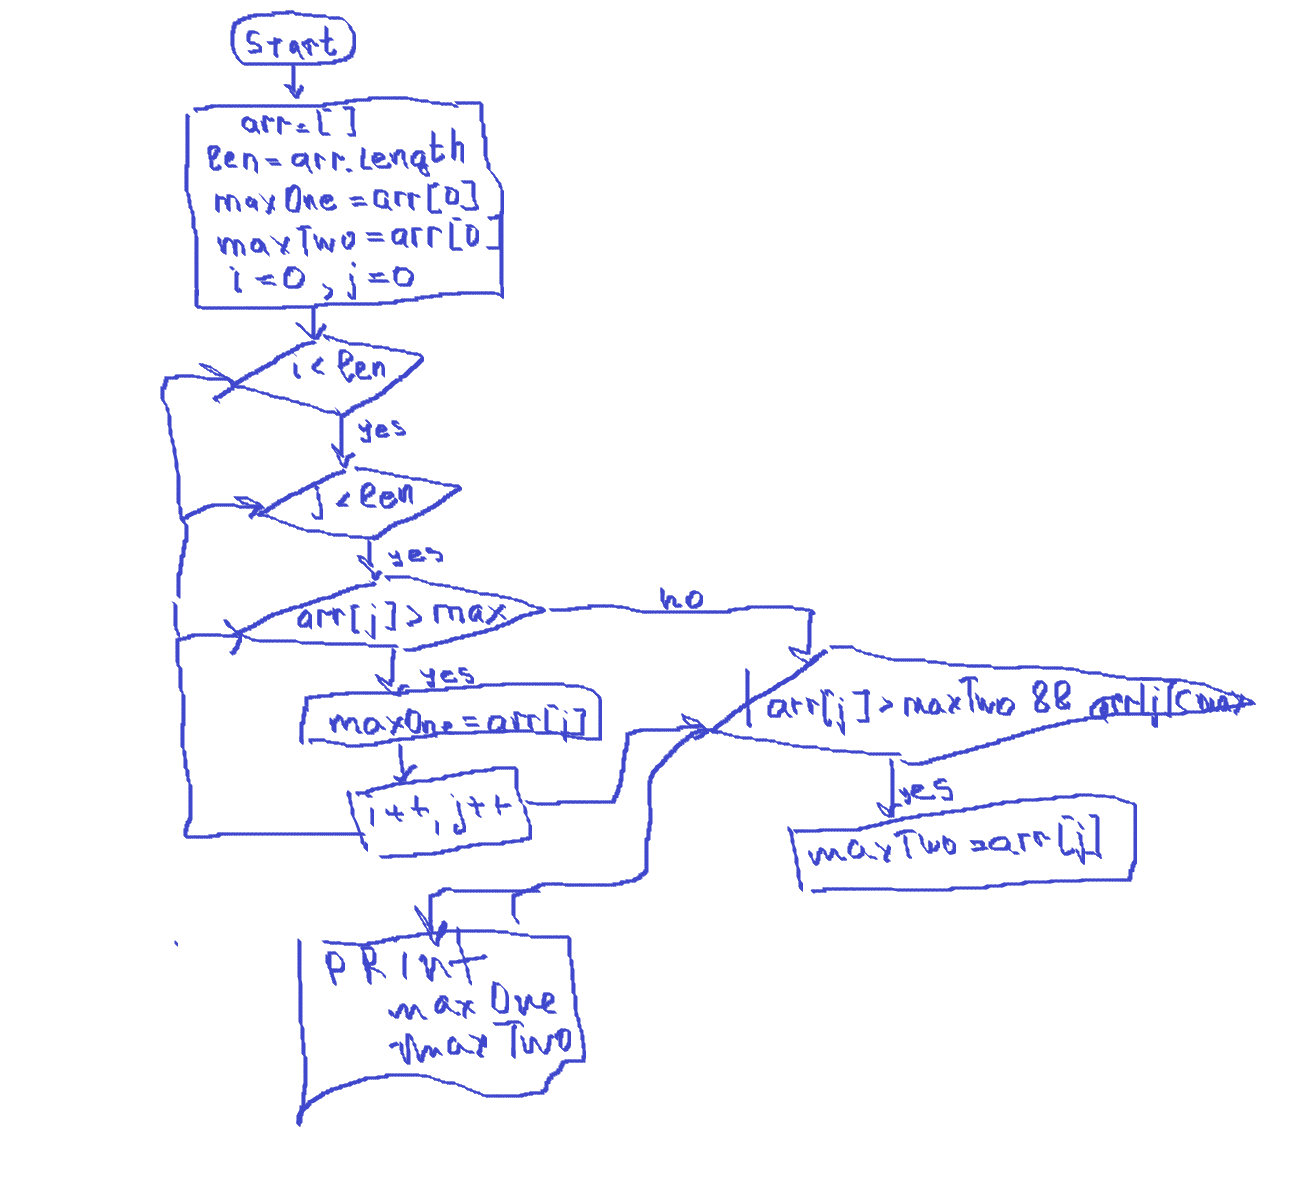 Start
arr=[ ]
len=arr.length
maxOne=arr[0]
maxTwo=arr[0]
i=0, j=0
i < len
yes
j < len
yes
arr[j]>max
no
yes
maxOne=arr[j]
arr[j]>maxTwo && arr[j]<max
i++, j++
yes
maxTwo=arr[j]
PRint
maxOne
maxTwo